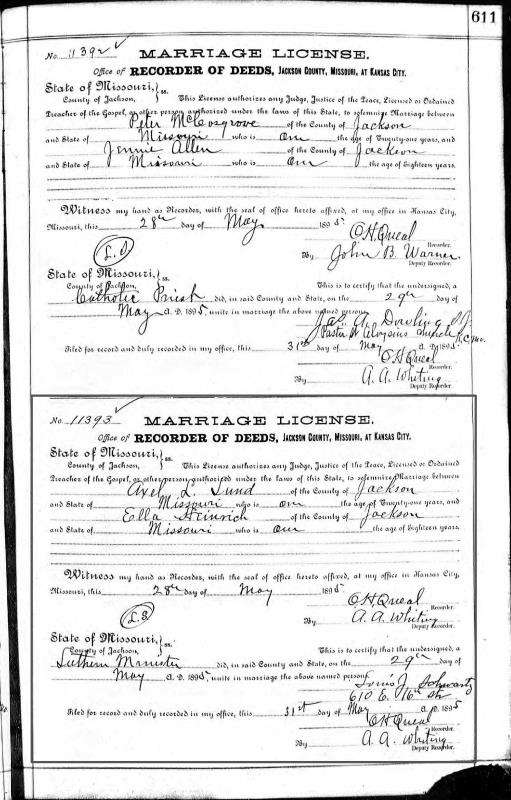 611
No. 11392 ✓
MARRIAGE LICENSE.
Office of RECORDER OF DEEDS, JACKSON COUNTY, MISSOURI, AT KANSAS CITY.
State of Missouri, } ss.
County of Jackson, This License authorizes any Judge, Justice of the Peace, Licensed or Ordained
Preacher of the Gospel, or other person authorized under the laws of this State, to solemnize Marriage between
Peter McCosgrove of the County of Jackson
and State of Missouri who is over the age of Twenty-one years, and
Jennie Allen of the County of Jackson
and State of Missouri who is over the age of Eighteen years.
Witness my hand as Recorder, with the seal of office hereto affixed, at my office in Kansas City,
Missouri, this 28th day of May 1895.
C. H. Queal
Recorder.
L.S
By John B. Warner
Deputy Recorder.
State of Missouri, } ss.
County of Jackson, This is to certify that the undersigned, a
Catholic Priest did, in said County and State, on the 29th day of
May A. D. 1895, unite in marriage the above named persons.
Jas. A. Dowling S.J.
Pastor St Aloysius K.C. Mo.
Filed for record and duly recorded in my office, this 31st day of May A. D. 1895.
C H Queal
Recorder.
By A. A. Whiting
Deputy Recorder.
No. 11393 ✓
MARRIAGE LICENSE.
Office of RECORDER OF DEEDS, JACKSON COUNTY, MISSOURI, AT KANSAS CITY.
State of Missouri, } ss.
County of Jackson, This License authorizes any Judge, Justice of the Peace, Licensed or Ordained
Preacher of the Gospel, or other person authorized under the laws of this State, to solemnize Marriage between
Axel L. Lund of the County of Jackson
and State of Missouri who is over the age of Twenty-one years, and
Ella Heinrich of the County of Jackson
and State of Missouri who is over the age of Eighteen years.
Witness my hand as Recorder, with the seal of office hereto affixed, at my office in Kansas City,
Missouri, this 28th day of May 1895
C H Queal
Recorder.
L.S
By A. A. Whiting
Deputy Recorder.
State of Missouri, } ss.
County of Jackson, This is to certify that the undersigned, a
Luthern Minister did, in said County and State, on the 29th day of
May A. D. 1895, unite in marriage the above named persons.
Louis J. Schwartz
610 E. 16th str
Filed for record and duly recorded in my office, this 31st day of May A. D. 1895
C H Queal
Recorder.
By A. A. Whiting
Deputy Recorder.